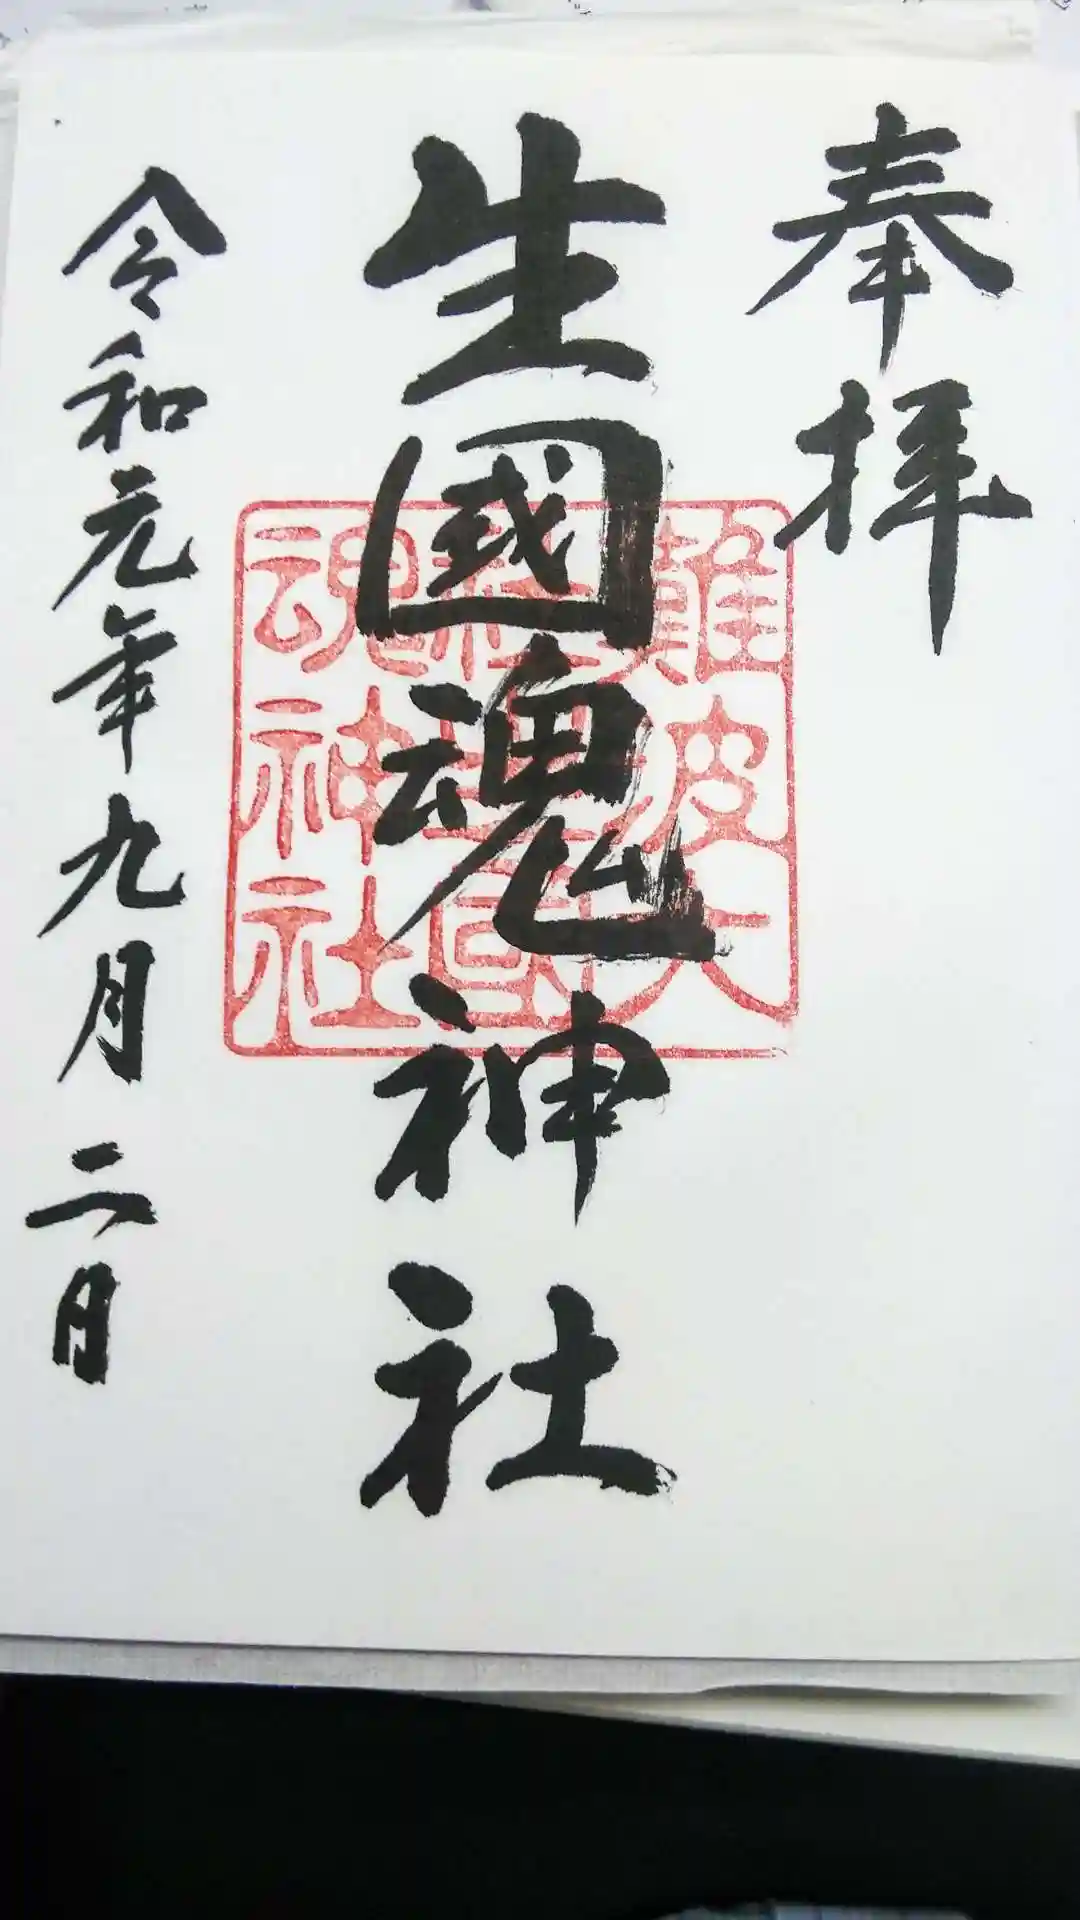 奉拝
生國魂神社
難波大社生國魂神社
令和元年九月二日